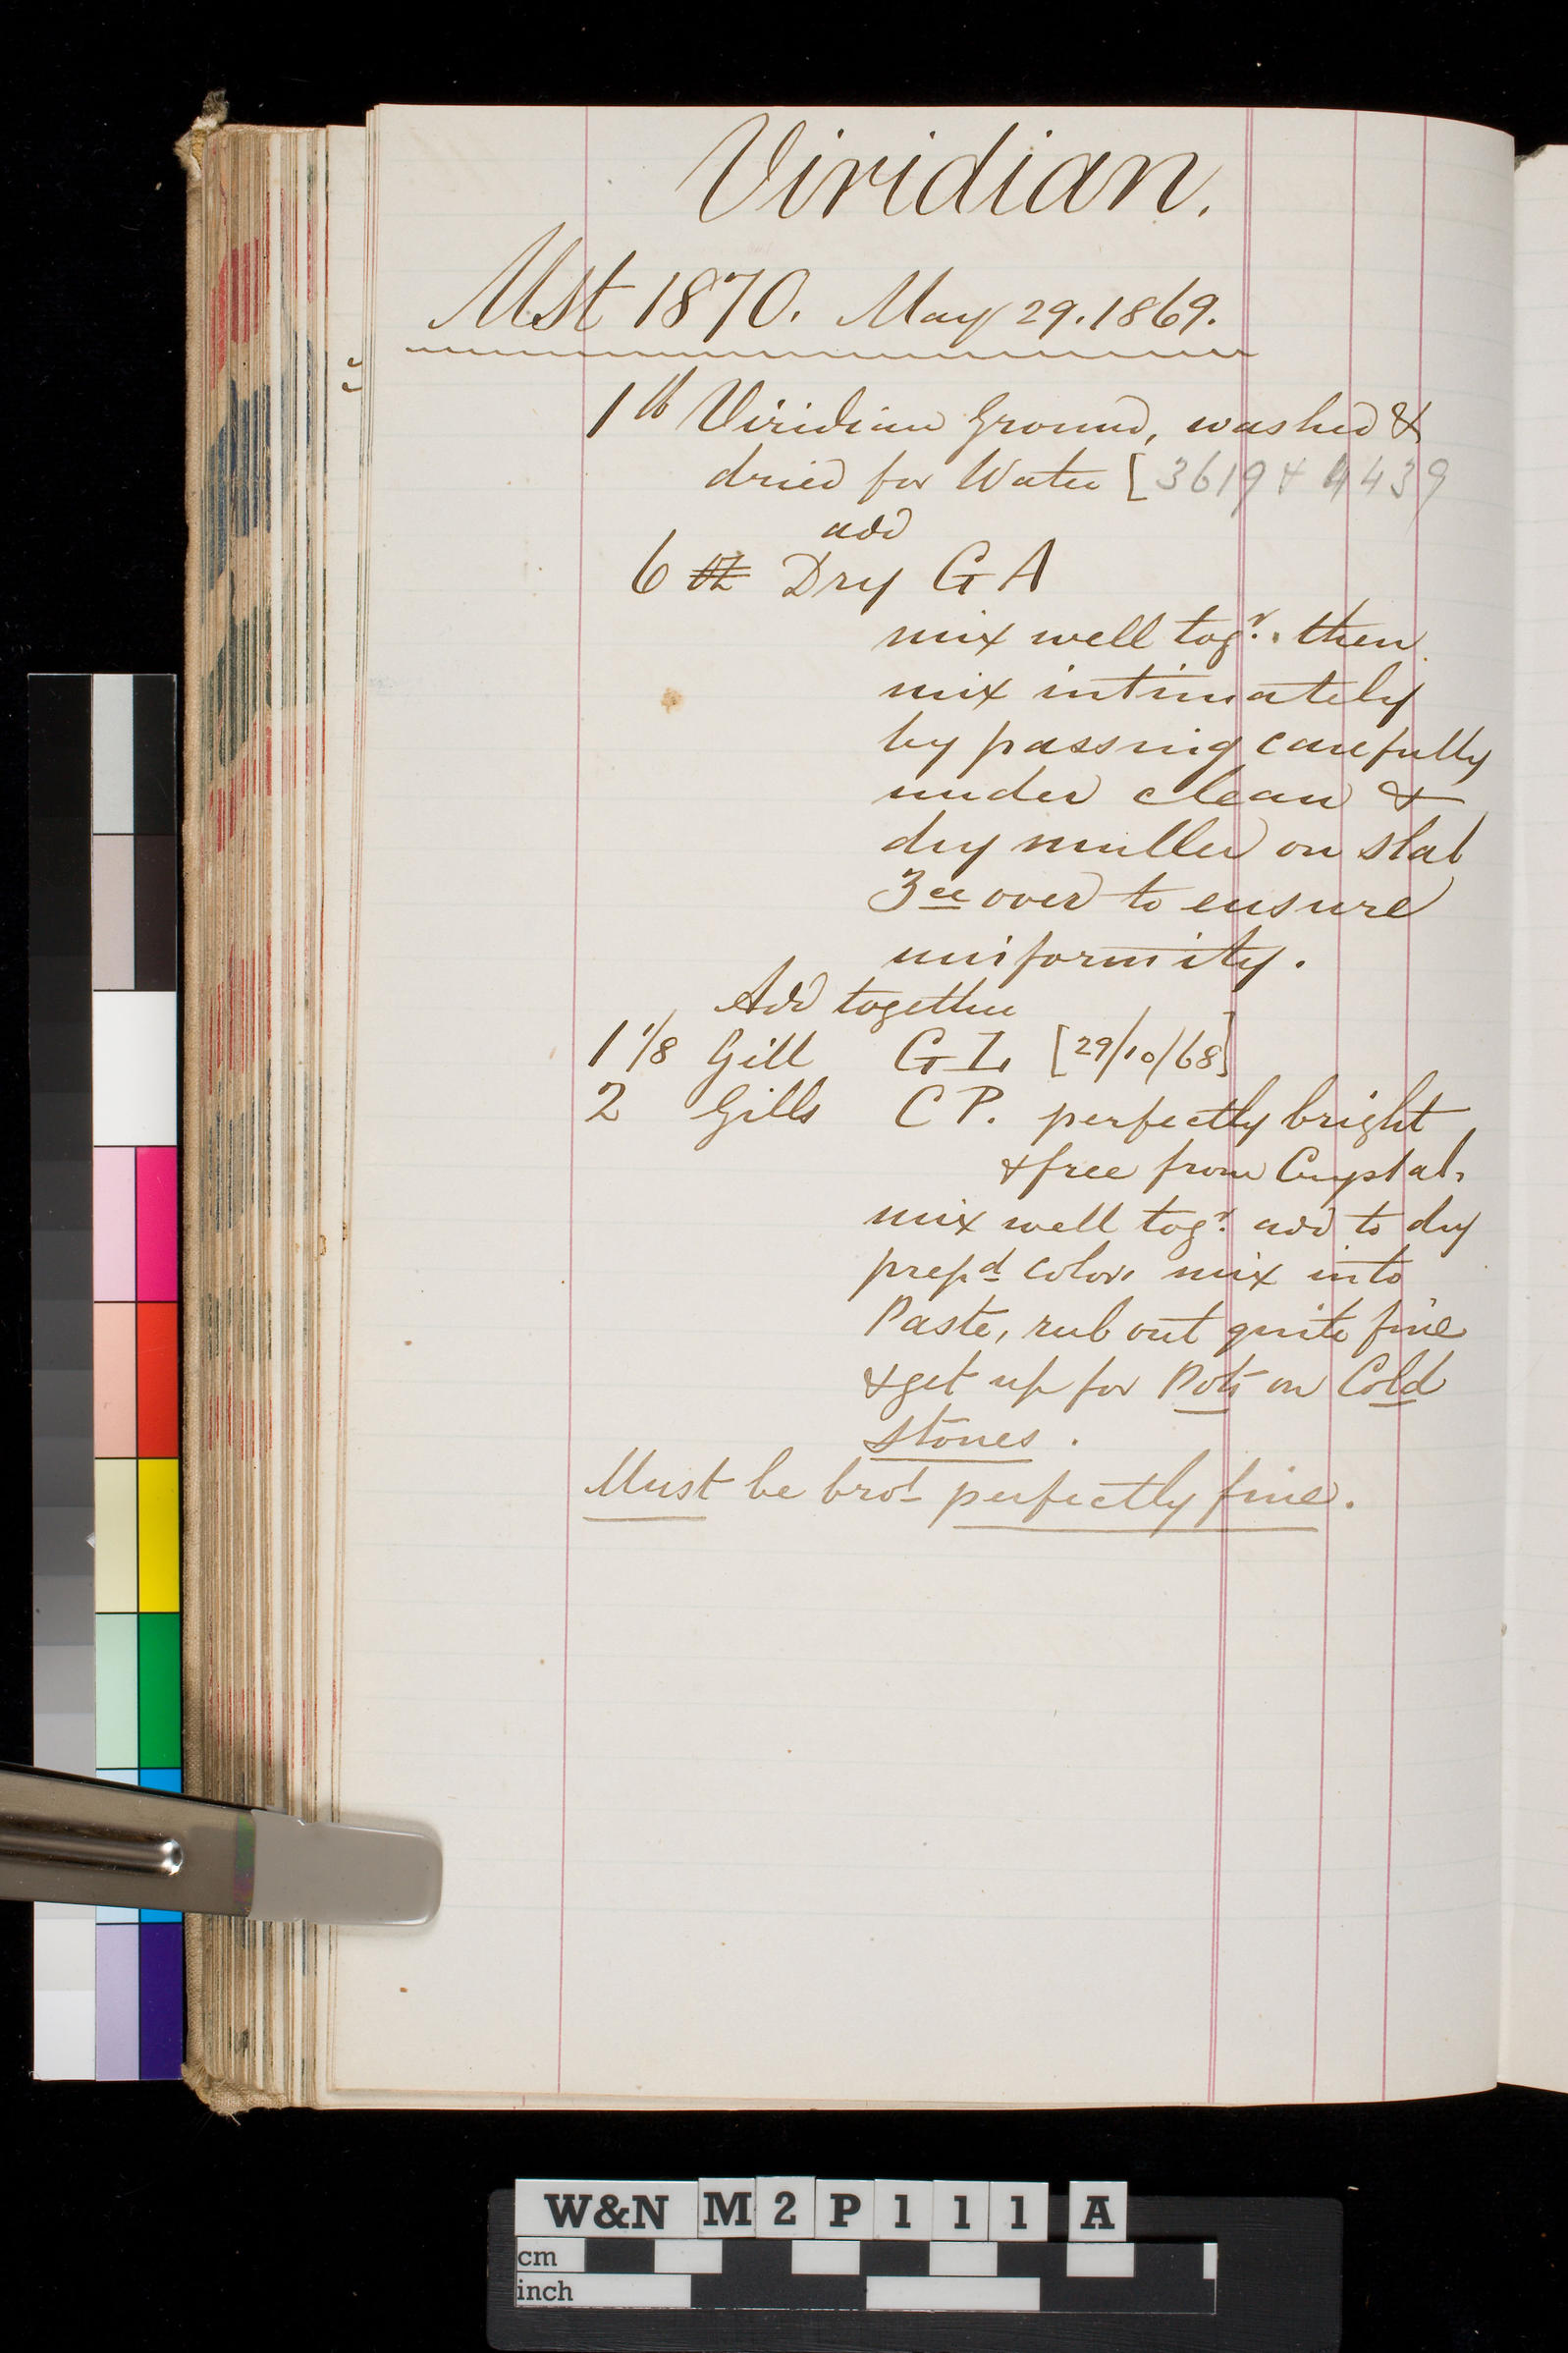 Viridian.
Mst 1870. May 29. 1869.
1 lb Viridian Ground, washed &
dried for Water [3619 & 4439
add
6 oz Dry G A
mix well togr. then
mix intimately
by passing carefully
under clean &
dry muller on slab
3ce over to ensure
uniformity.
Add together
1 1/8 Gill G L [29/10/68]
2 Gills C P. perfectly bright
& free from Crystal.
mix well togr. add to dry
prepd color, mix into
Paste, rub out quite fine
& get up for Pots on Cold
stones.
Must be brot perfectly fine.
W&N M2P111 A
cm
inch